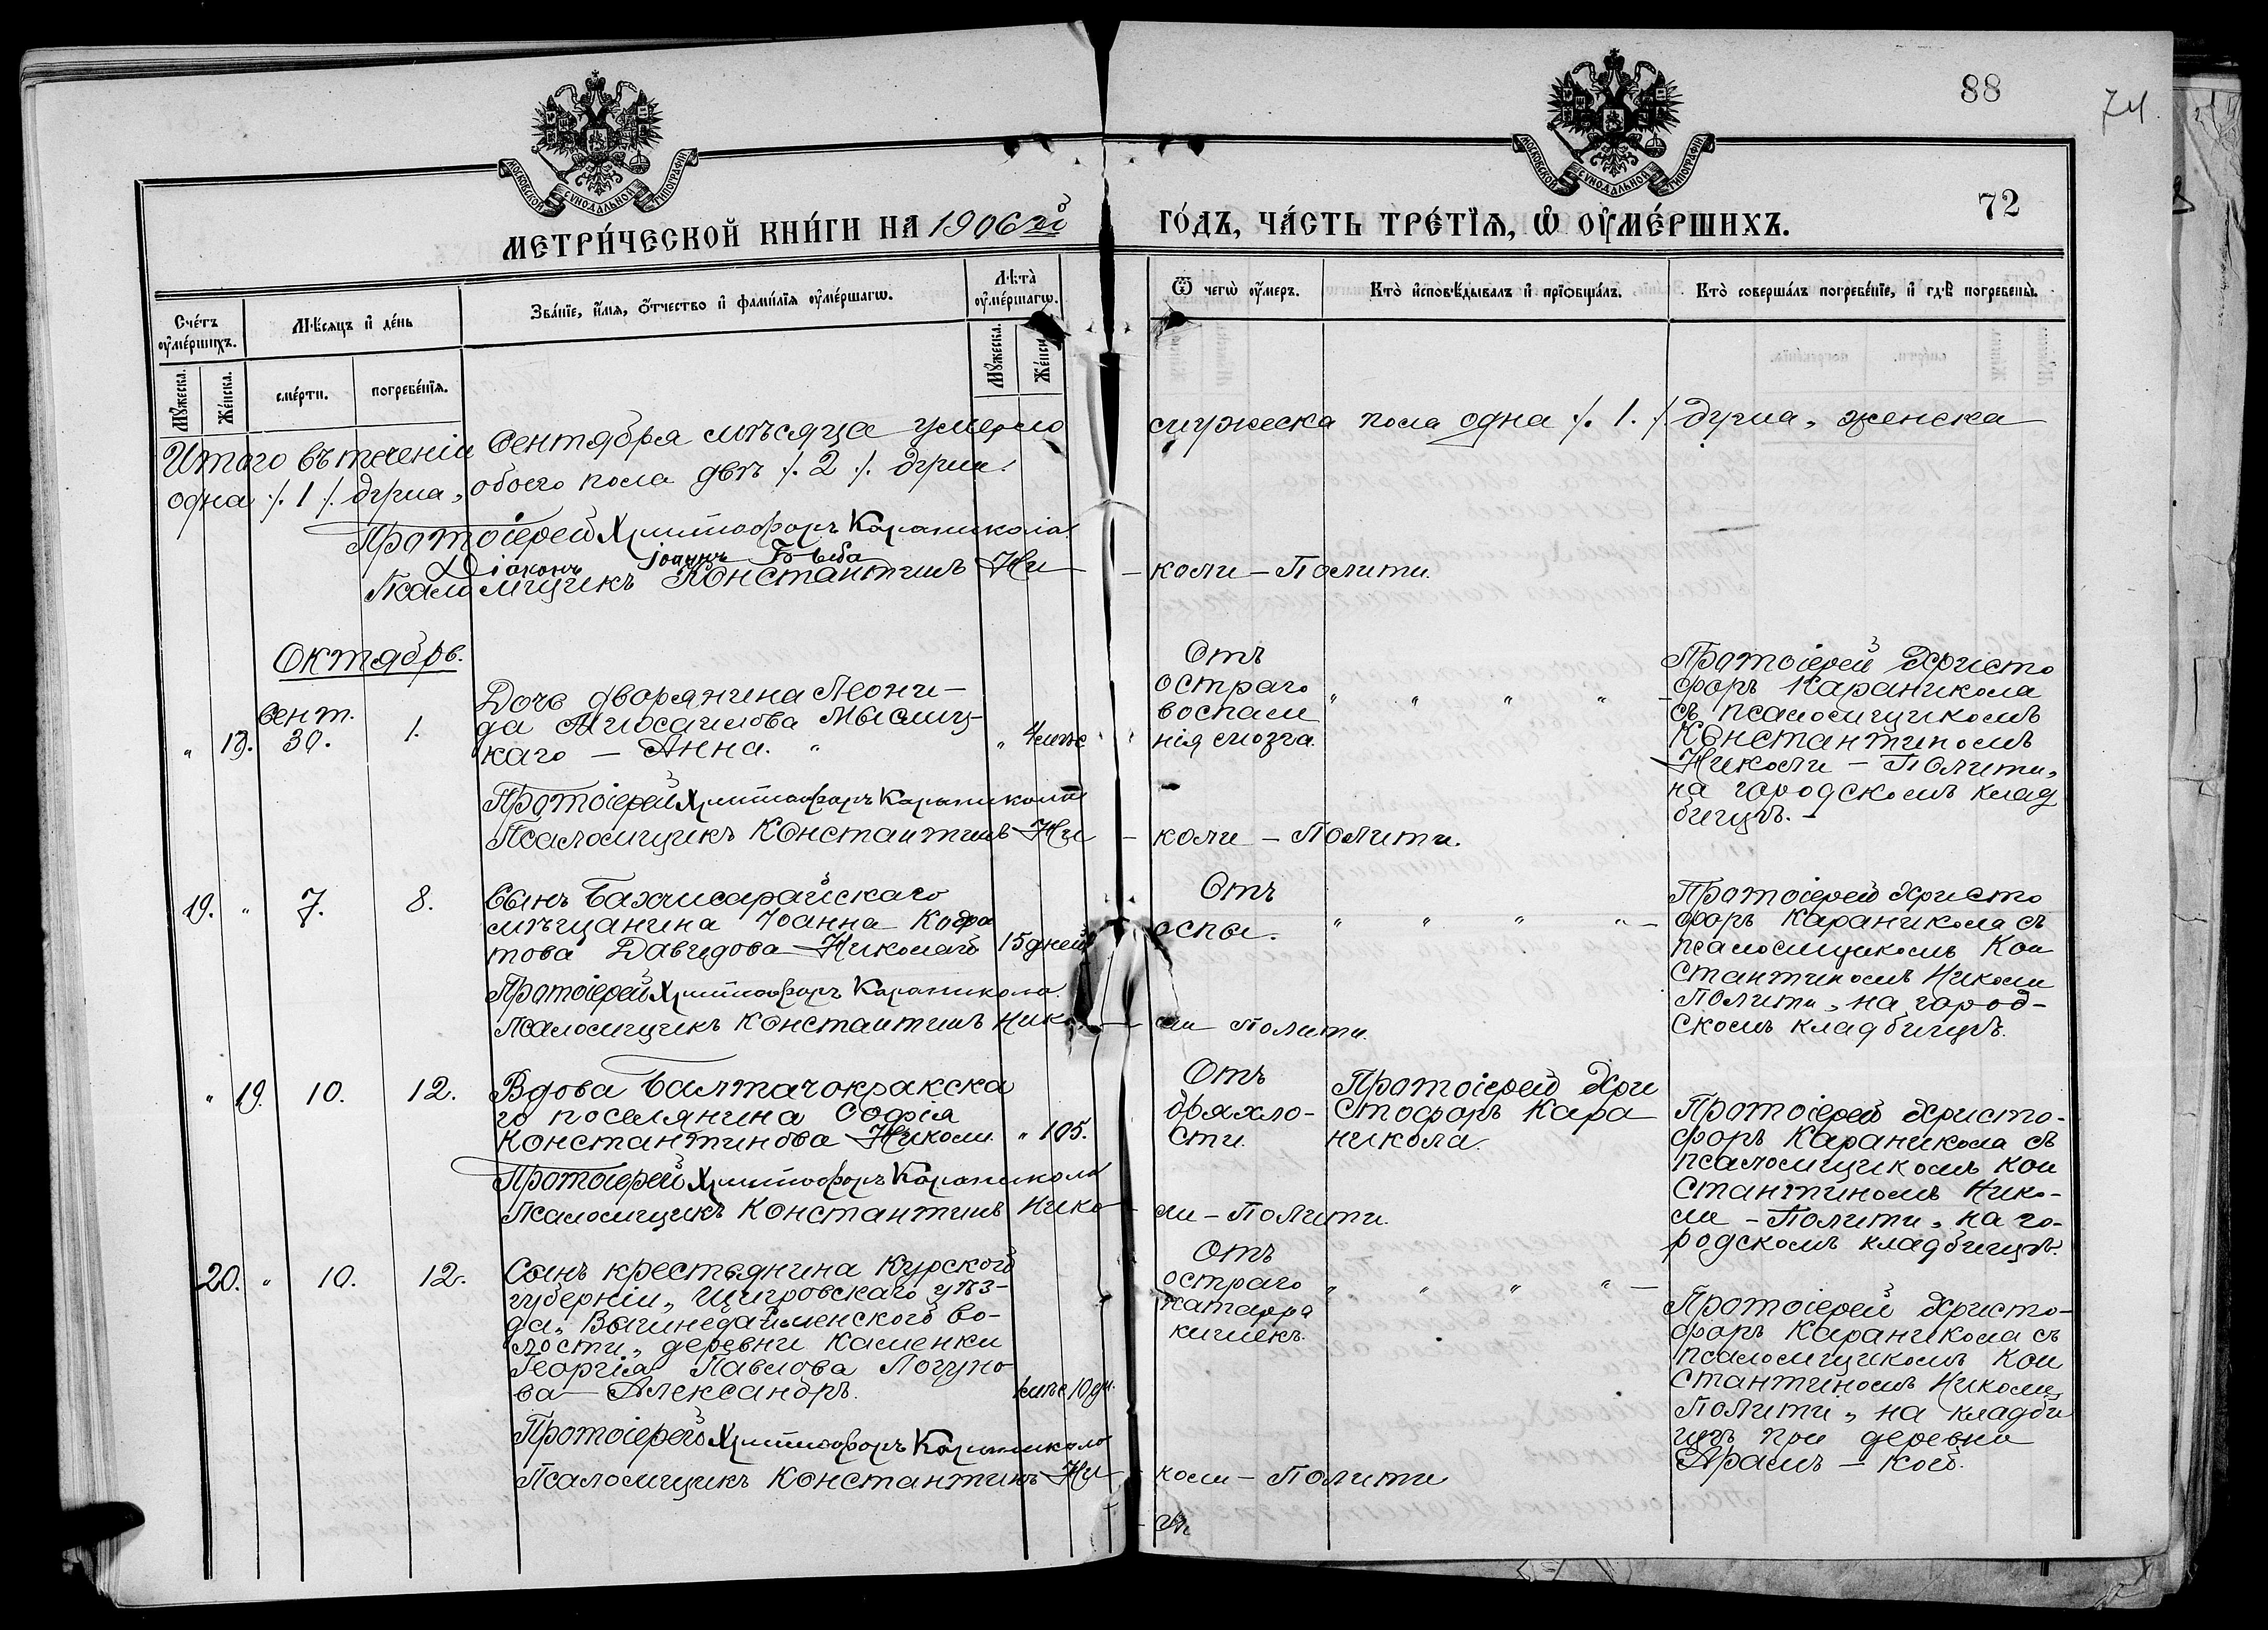 88
74
МОСКОВСКОЙ СѴНОДАЛЬНОЙ ТИПОГРАФІИ.
МОСКОВСКОЙ СѴНОДАЛЬНОЙ ТИПОГРАФІИ.
72
МЕТРИ́ЧЕСКОЙ КНИ́ГИ НА 1906й ГО́ДЪ, ЧА́СТЬ ТРЕ́ТЇѦ, Ѡ҆ ОУ҆МЕ́РШИХЪ.
Сче́тъ оу҆ме́ршихъ.
Мѣ́сяцъ и҆ де́нь
Зва́нїе, и҆́мя, ѻ҆́тчество и҆ фами́лїя оу҆ме́ршагѡ.
Лѣ́та̀ оу҆ме́ршагѡ.
Ѿ чегѡ̀ оу҆́меръ.
Кто̀ и҆сповѣ́дывалъ и҆ прїѡбща́лъ.
Кто̀ соверша́лъ погребе́нїе, и҆ гдѣ̀ погребены̀.
Мꙋ́жеска.
Же́нска.
сме́рти.
погребе́нїя.
Мꙋ́жеска.
Же́нска.
Итого въ теченіи Сентября мѣсяца умерло мужеска пола одна /. 1. / душа, женска
одна /. 1 /. душа, обоего пола двѣ /. 2 /. души.
Протоіерей Христофоръ Караникола.
Діаконъ Іоаннъ
Псаломщикъ Константинъ Ни-коли-Полити.
Октябрь.
„ 13. Сент. 30. 1.
Дочь дворянина Леони-
да Михаилова Мыслиц-
каго — Анна. „
„ 4 мѣс
Отъ
остраго
воспале
нія мозга.
„ „ „ „
Протоіерей Христо
форъ Караникола
съ псаломщикомъ
Константиномъ
Николи — Полити,
на городскомъ клад
бищѣ. -
Протоіерей Христофоръ Караникола
Псаломщикъ Константинъ Ни-коли - Полити.
19. „ 7. 8.
Сынъ Бахчисарайскаго
мѣщанина Іоанна
това Давидова — Николай
15 дней
Отъ
оспы.
„ „ „ „
Протоіерей Христо
форъ Караникола съ
псаломщикомъ Кон
стантиномъ Николи
Полити, на город-
скомъ кладбищѣ.
Протоіерей Христофоръ Караникола.
Псаломщикъ Константинъ Нико-ли Полити.
„ 19. 10. 12.
Вдова Балтачокракска
го поселянина Софія
Константинова Николи.
„ 105.
Отъ
дряхло-
сти.
Протоіерей Хри
стофоръ Кара
никола.
Протоіерей Христо-
форъ Караникола съ
псаломщикомъ Кон
стантиномъ Нико-
ли - Полити, на го-
родскомъ кладбищѣ.
Протоіерей Христофоръ Караникола
Псаломщикъ Константинъ Нико-ли - Полити.
20. „ 10. 12.
Сынъ крестьянина Курской
губерніи, Щигровскаго уѣз-
да, во-
лости, деревни Каменки
Георгія Павлова Логуно
ва — Александръ.
1 мѣс 10 дн.
Отъ
остраго
катарра
кишекъ.
„ „ „ „
Протоіерей Христо-
форъ Караникола съ
псаломщикомъ Кон
стантиномъ Николи,
Полити, на кладби
щѣ при деревни
Арамъ — Кой.
Протоіерей Христофоръ Караникола
Псаломщикъ Константинъ Ни-коли - Полити